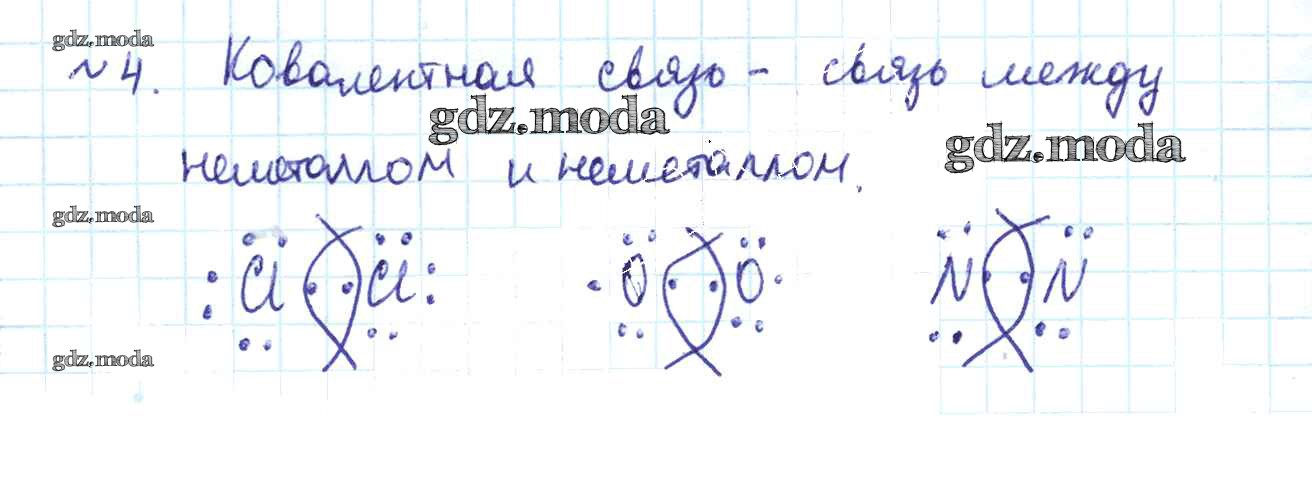 gdz.moda
№4. Ковалентная связь - связь между
gdz.moda
gdz.moda
неметаллом и неметаллом.
gdz.moda
Cl Cl O O N N
gdz.moda